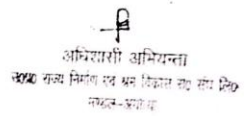 अधिशासी अभियन्ता
उ०प्र० राज्य निर्माण एवं श्रम विकास सह० संघ लि०